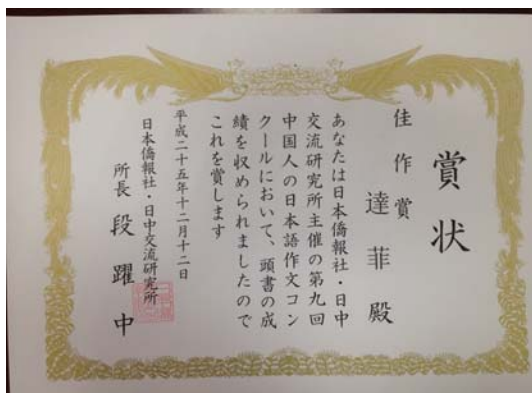 賞状
佳作賞
達菲殿
あなたは日本僑報社・日中
交流研究所主催の第九回
中国人の日本語作文コン
クールにおいて、頭書の成
績を収められましたので
これを賞します
平成二十五年十二月十二日
日本僑報社・日中交流研究所
所長段躍中